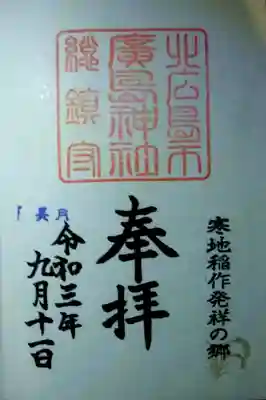 北広島市
廣島神社
総鎮守
寒地稲作発祥の郷
奉拝
令和三年
九月十一日